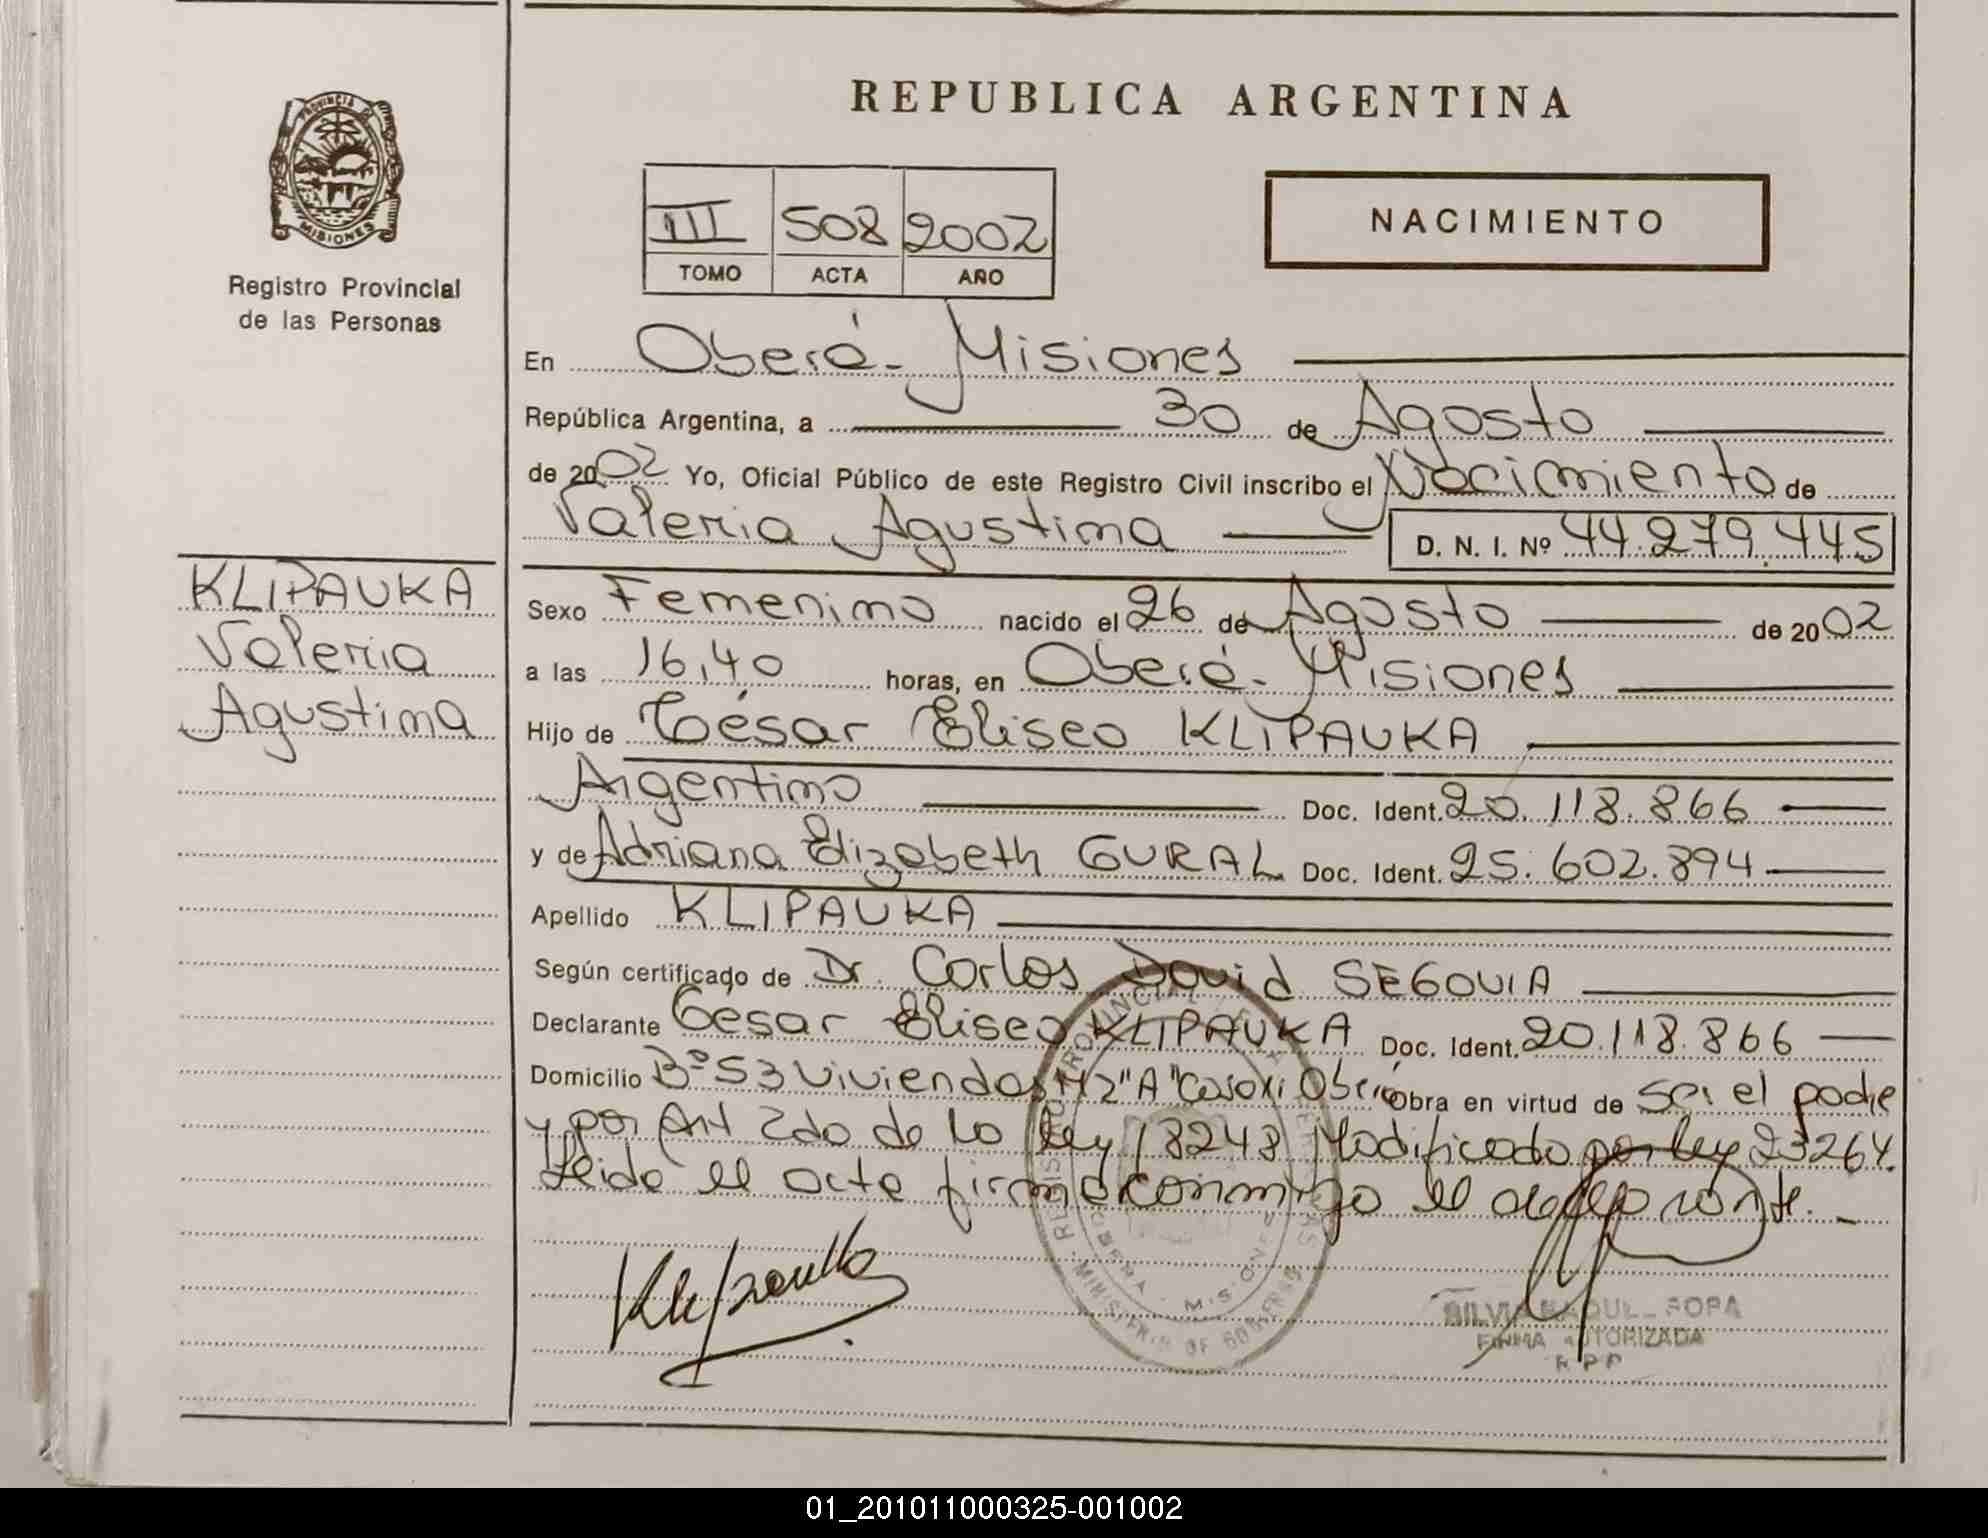 REPUBLICA ARGENTINA
PROVINCIA DE
MISIONES
Registro Provincial
de las Personas
NACIMIENTO
III 508 2002
TOMO ACTA AÑO
En Oberá - Misiones
República Argentina, a 30 de Agosto
de 2002 Yo, Oficial Público de este Registro Civil inscribo el Nacimiento de
Valeria Agustina D. N. I. Nº 44.279.445
KLIPAUKA
Valeria
Agustina
Sexo Femenino nacido el 26 de Agosto de 2002
a las 16,40 horas, en Oberá - Misiones
Hijo de César Eliseo KLIPAUKA
Argentino Doc. Ident. 20.118.866
y de Adriana Elizabeth GURAL Doc. Ident. 25.602.894
Apellido KLIPAUKA
Según certificado de Dr. Carlos David SEGOVIA
Declarante César Eliseo KLIPAUKA Doc. Ident. 20.118.866
Domicilio Bº 53 Viviendas Mz "A" Obra en virtud de ser el padre
y por Art 2do de la Ley 18248 Modificado por Ley 23264.
Leida el acta firma conmigo el declarante. -
Klipauka
REGISTRO PROVINCIAL DE LAS PERSONAS
MINISTERIO DE GOBIERNO
OBERA - MISIONES
SILVIA RAQUEL SOPA
FIRMA AUTORIZADA
R P P
01_201011000325-001002